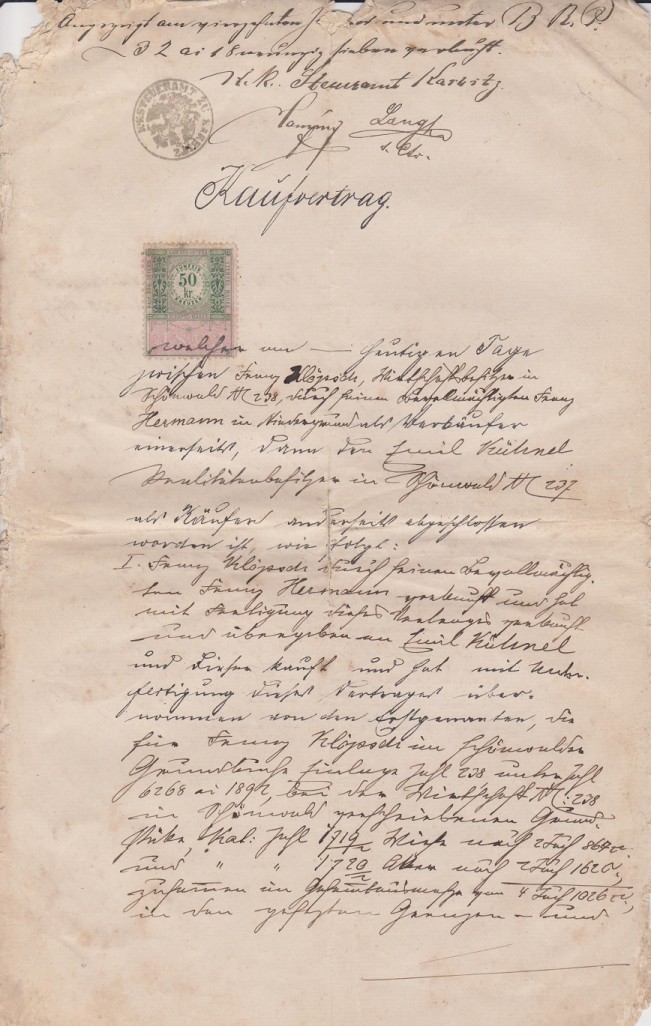 Angezeigt am vierzehnten und unter B. R. P.
32 ai 18 neunzig sieben verbucht.
K. k. Steueramt Karbitz
K.K. STEUERAMT ZU KARBITZ
Langha
s. Ctr.
Kaufvertrag.
50
kr
welcher am — heutigen Tage
zwischen Franz Klöpsch, Wirtschaftsbesitzer in
Schönwald N 238, durch seinen Bevollmächtigten Franz
Hermann in Niedergrund als Verkäufer
einerseits, dann den Emil Kühnel
Realitätenbesitzer in Schönwald N 237
als Käufer anderseits abgeschlossen
worden ist, wie folgt:
I. Franz Klöpsch durch seinen Bevollmächtig-
ten Franz Hermann verkauft und hat
mit Fertigung dieses Vertrages verkauft
und übergeben an Emil Kühnel
und dieser kauft und hat mit Unter-
fertigung dieses Vertrages über-
nommen von den Erstgenannten, die
für Franz Klöpsch im Schönwalder
Grundbuche Einlage Zahl 238 unter Zahl
6268 ai 1892, bei der Wirtschaft N: 238
in Schönwald verschriebenen Grund-
stücke, Kat: Zahl 1719 Wiese nach 2 Joch 864
und " " 1720 Aker nach 2 Joch 162
zusammen im Gesamtausmaße von 4 Joch 1026
in den gesetzten Grenzen – und